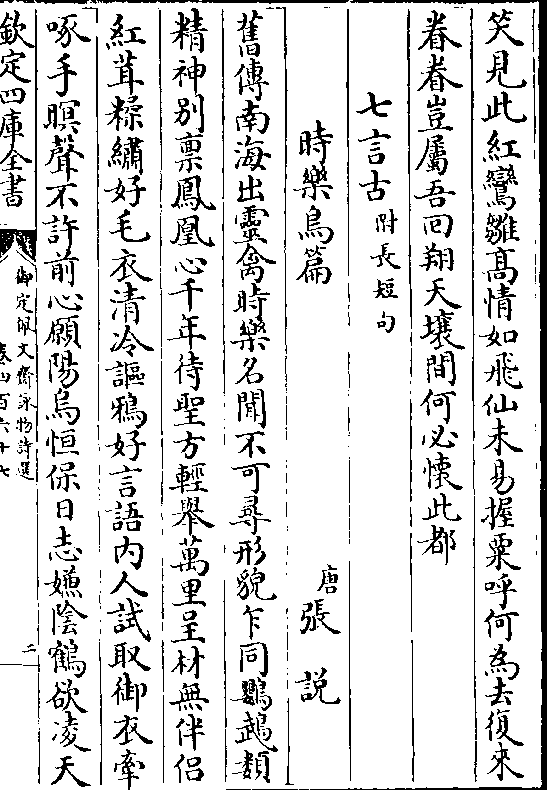 笑見此紅鸞雛髙情如飛仙未易握粟呼何為去復來
眷眷豈屬吾囘翔天壤間何必懐此都
七言古附長短句
時樂鳥篇
唐張説
舊傳南海出靈禽時樂名聞不可尋形貌乍同鸚鵡類
精神别禀鳳凰心千年待聖方輕舉萬里呈材無伴侣
紅茸糅繡好毛衣清冷謳鴉好言語内人試取御衣牽
啄手瞑聲不許前心願陽烏恒保日志嫌隂鶴欲凌天
欽定四庫全書
御定佩文齋詠物詩選
卷四百六十七
二